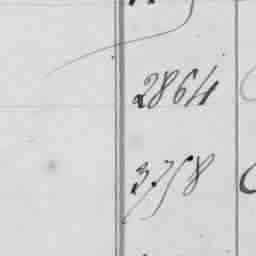 2864
3758